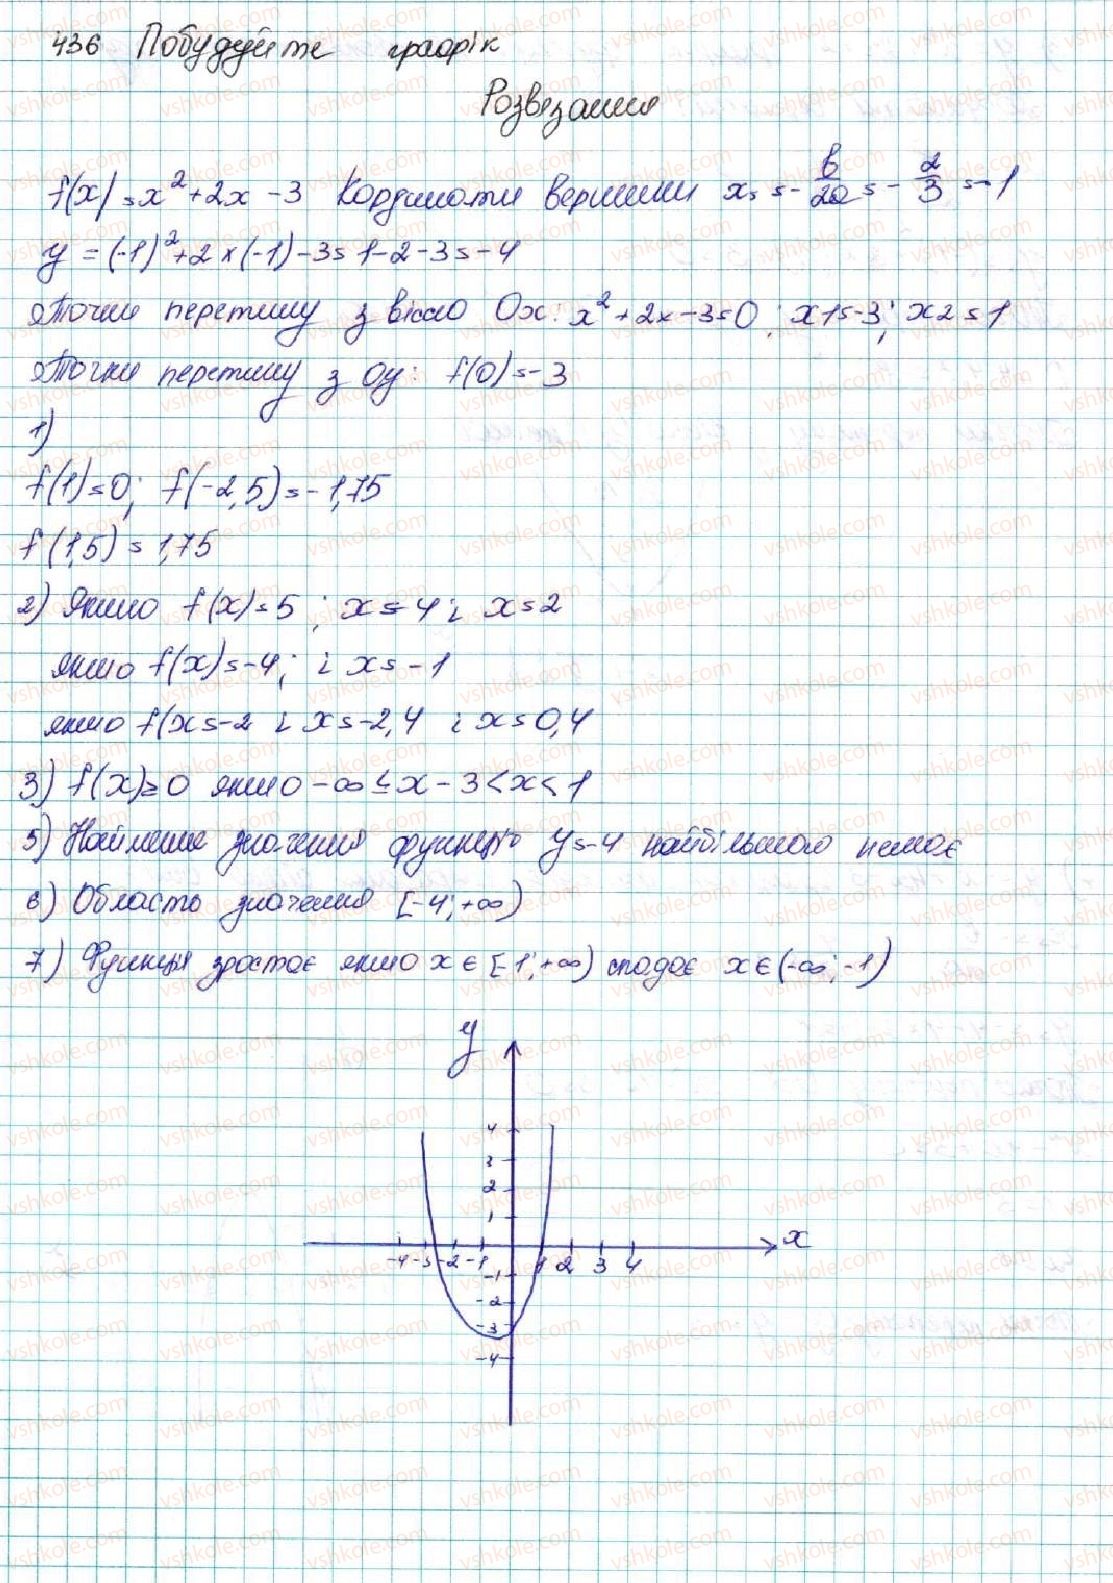 436 Побудуйте графік
Розвязання
f(x)=x²+2x-3 Кординати вершини x₀=-b/2a=-2/3=-1
y=(-1)²+2×(-1)-3=1-2-3=-4
Точки перетину з віссю Ox: x²+2x-3=0; x1=-3; x2=1
Точки перетину з Oy: f(0)=-3
1)
f(1)=0; f(-2,5)=-1,75
f(1,5)=1,75
2) Якшо f(x)=5; x=4 i x=2
якшо f(x)=-4; i x=-1
якшо f(x=-2 i x=-2,4 i x=0,4
3) f(x)≥0 якшо -∞≤x-3<x<1
5) Найменше значення функцію y=-4 найбільшого немає
6) Область значення [-4;+∞)
7) Функція зростає якшо x∈[-1;+∞) спадає x∈(-∞;-1)
y
4
3
2
1
x
-4 -3 -2 -1 1 2 3 4
-1
-2
-3
-4